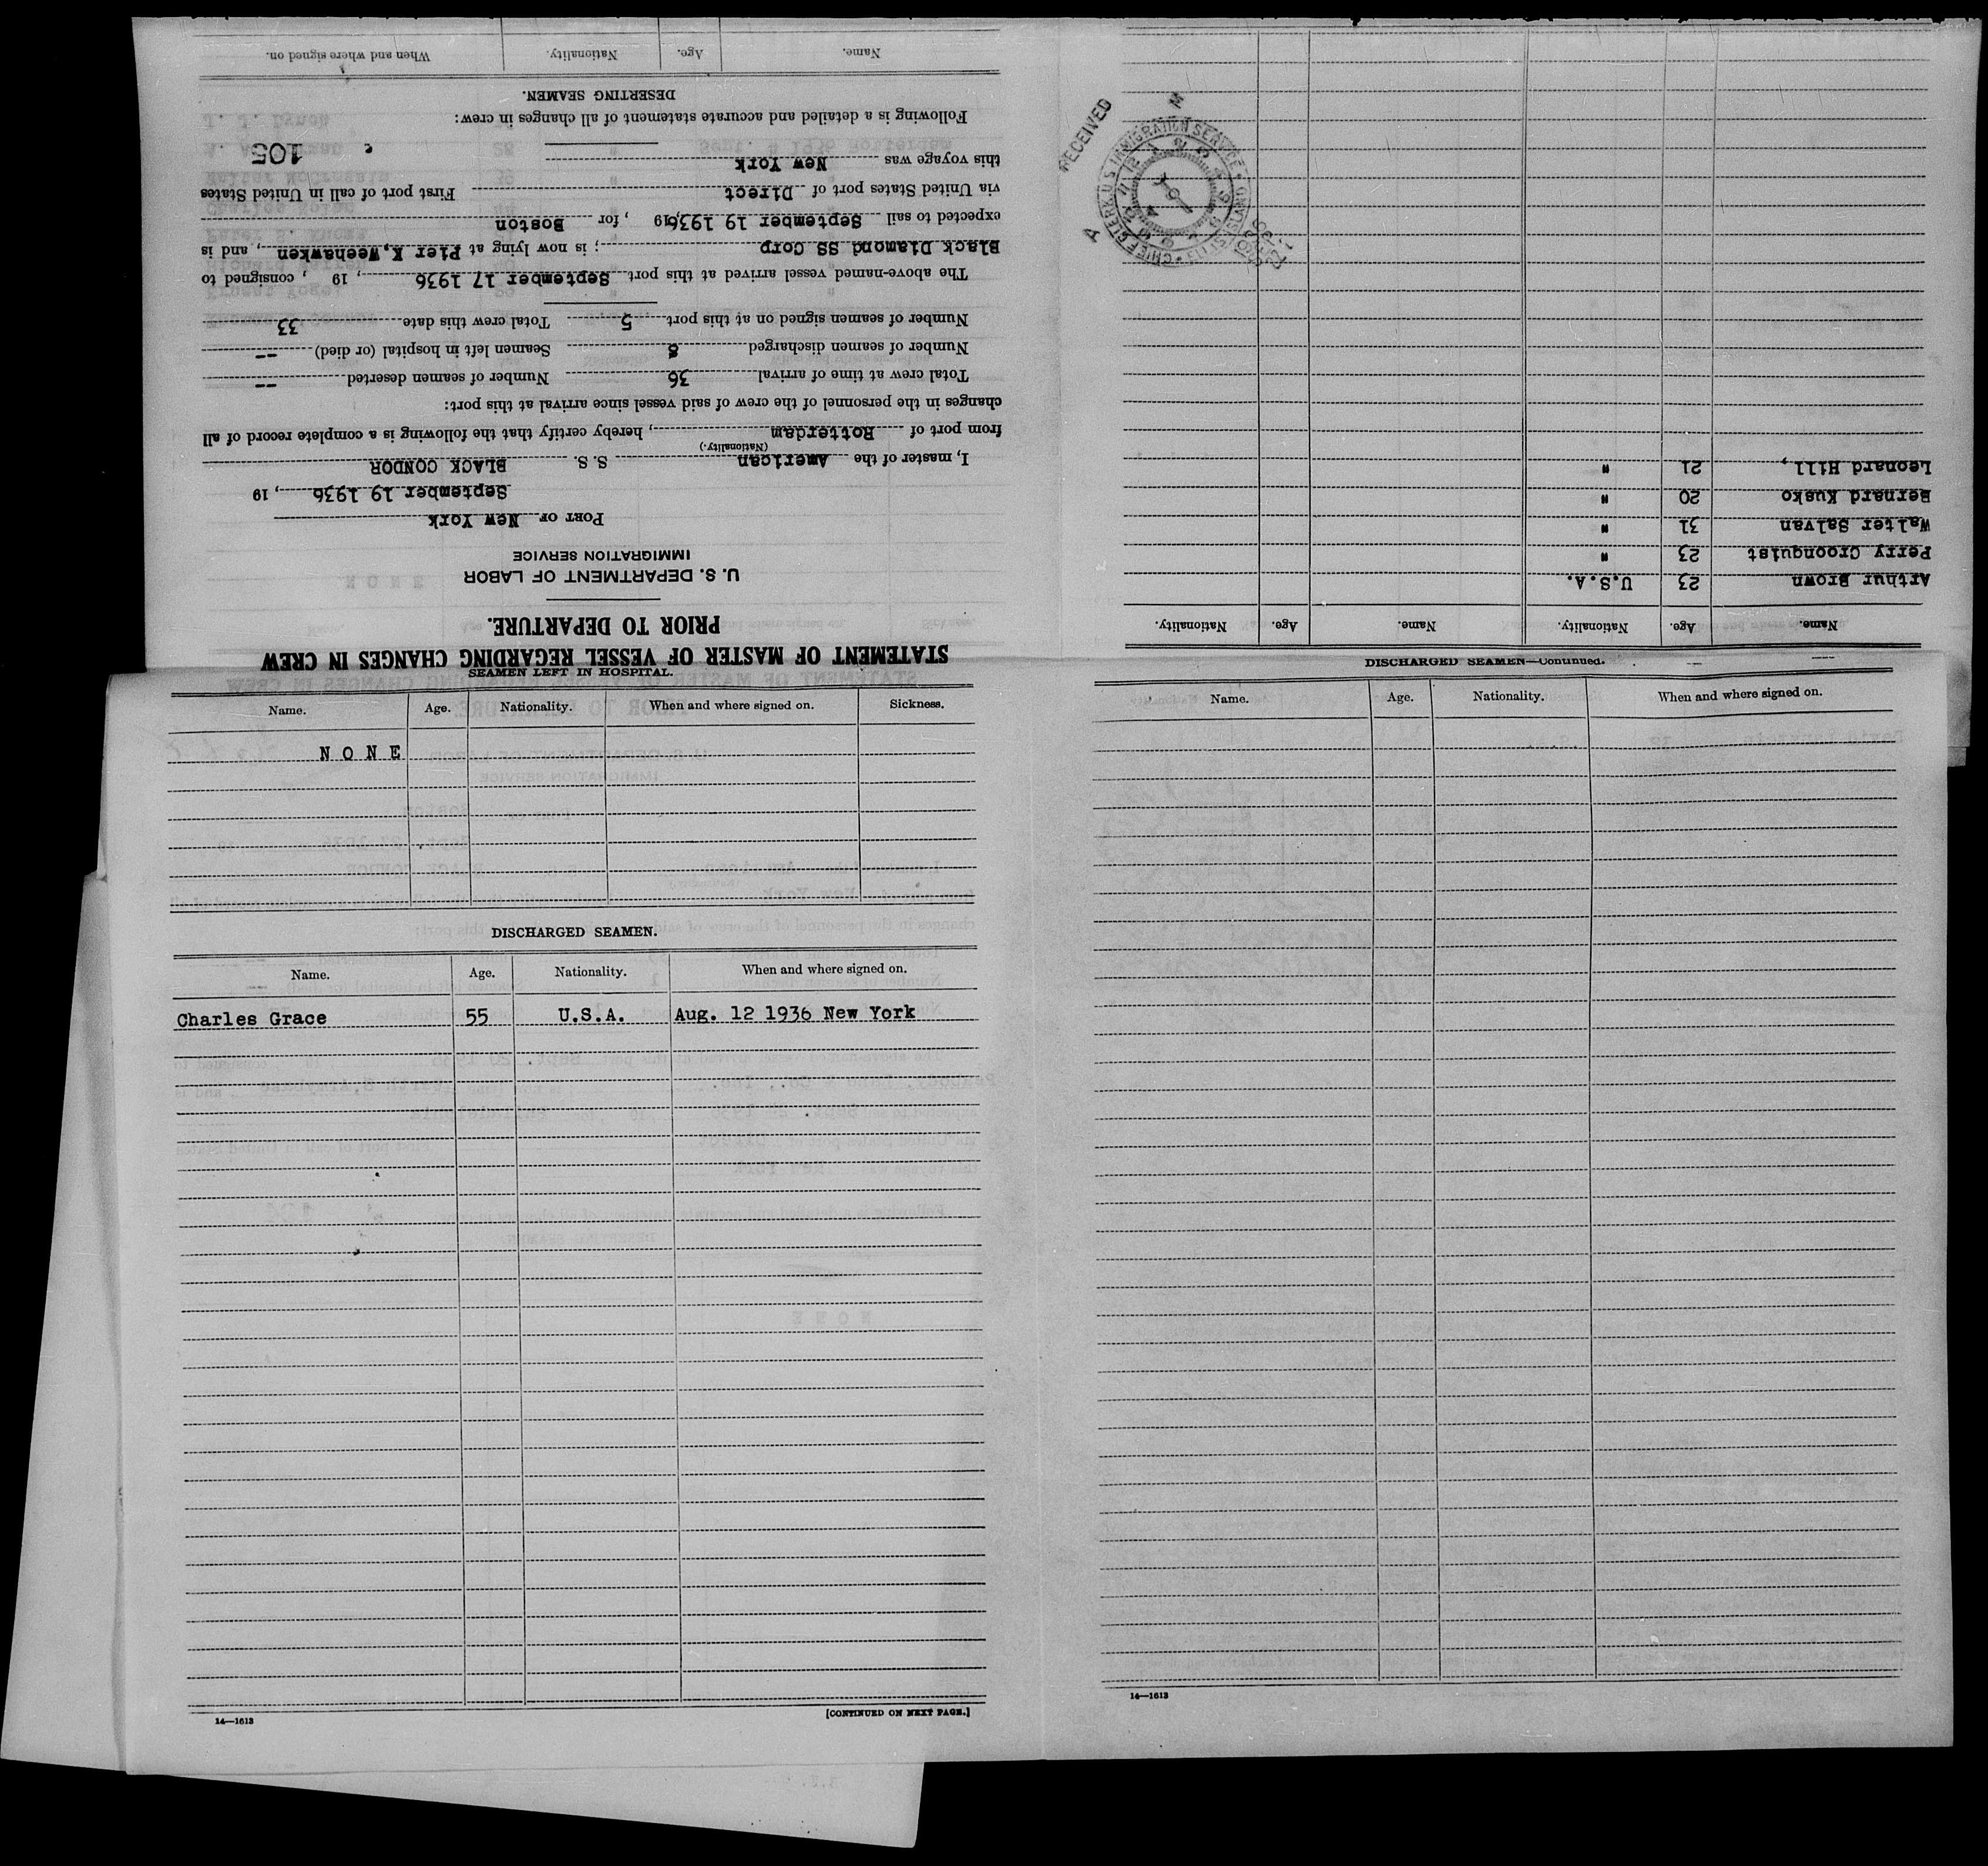 STATEMENT OF MASTER OF VESSEL REGARDING CHANGES IN CREW
PRIOR TO DEPARTURE.
U. S. DEPARTMENT OF LABOR
IMMIGRATION SERVICE
PORT OF New York
September 19 1936, 19
I, master of the American S. S. BLACK CONDOR
(Nationality.)
from port of Rotterdam, hereby certify that the following is a complete record of all
changes in the personnel of the crew of said vessel since arrival at this port:
Total crew at time of arrival 36 Number of seamen deserted --
Number of seamen discharged 8 Seamen left in hospital (or died) --
Number of seamen signed on at this port 5 Total crew this date 33
The above-named vessel arrived at this port September 17 1936, 19 , consigned to
Black Diamond SS Corp ; is now lying at Pier K, Weehawken, and is
expected to sail September 19 1936, 19 , for Boston
via United States port of Direct First port of call in United States
this voyage was New York
105
Following is a detailed and accurate statement of all changes in crew:
DESERTING SEAMEN.
Name. Age. Nationality. When and where signed on.
Name. Age. Nationality. Name. Age. Nationality.
Arthur Brown 23 U.S.A.
Perry Croonquist 23 "
Walter Salvan 31 "
Bernard Kusko 20 "
Leonard Hill, 21 "
RECEIVED
A M
CHIEF CLERK U.S. IMMIGRATION SERVICE
SEAMEN LEFT IN HOSPITAL.
Name. Age. Nationality. When and where signed on. Sickness.
N O N E
DISCHARGED SEAMEN.
Name. Age. Nationality. When and where signed on.
Charles Grace 55 U.S.A. Aug. 12 1936 New York
14—1613
[CONTINUED ON NEXT PAGE.]
DISCHARGED SEAMEN—Continued.
Name. Age. Nationality. When and where signed on.
14—1613